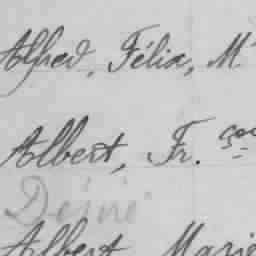 Alfred, Félix, M
Albert, Fr. 
Albert Marie